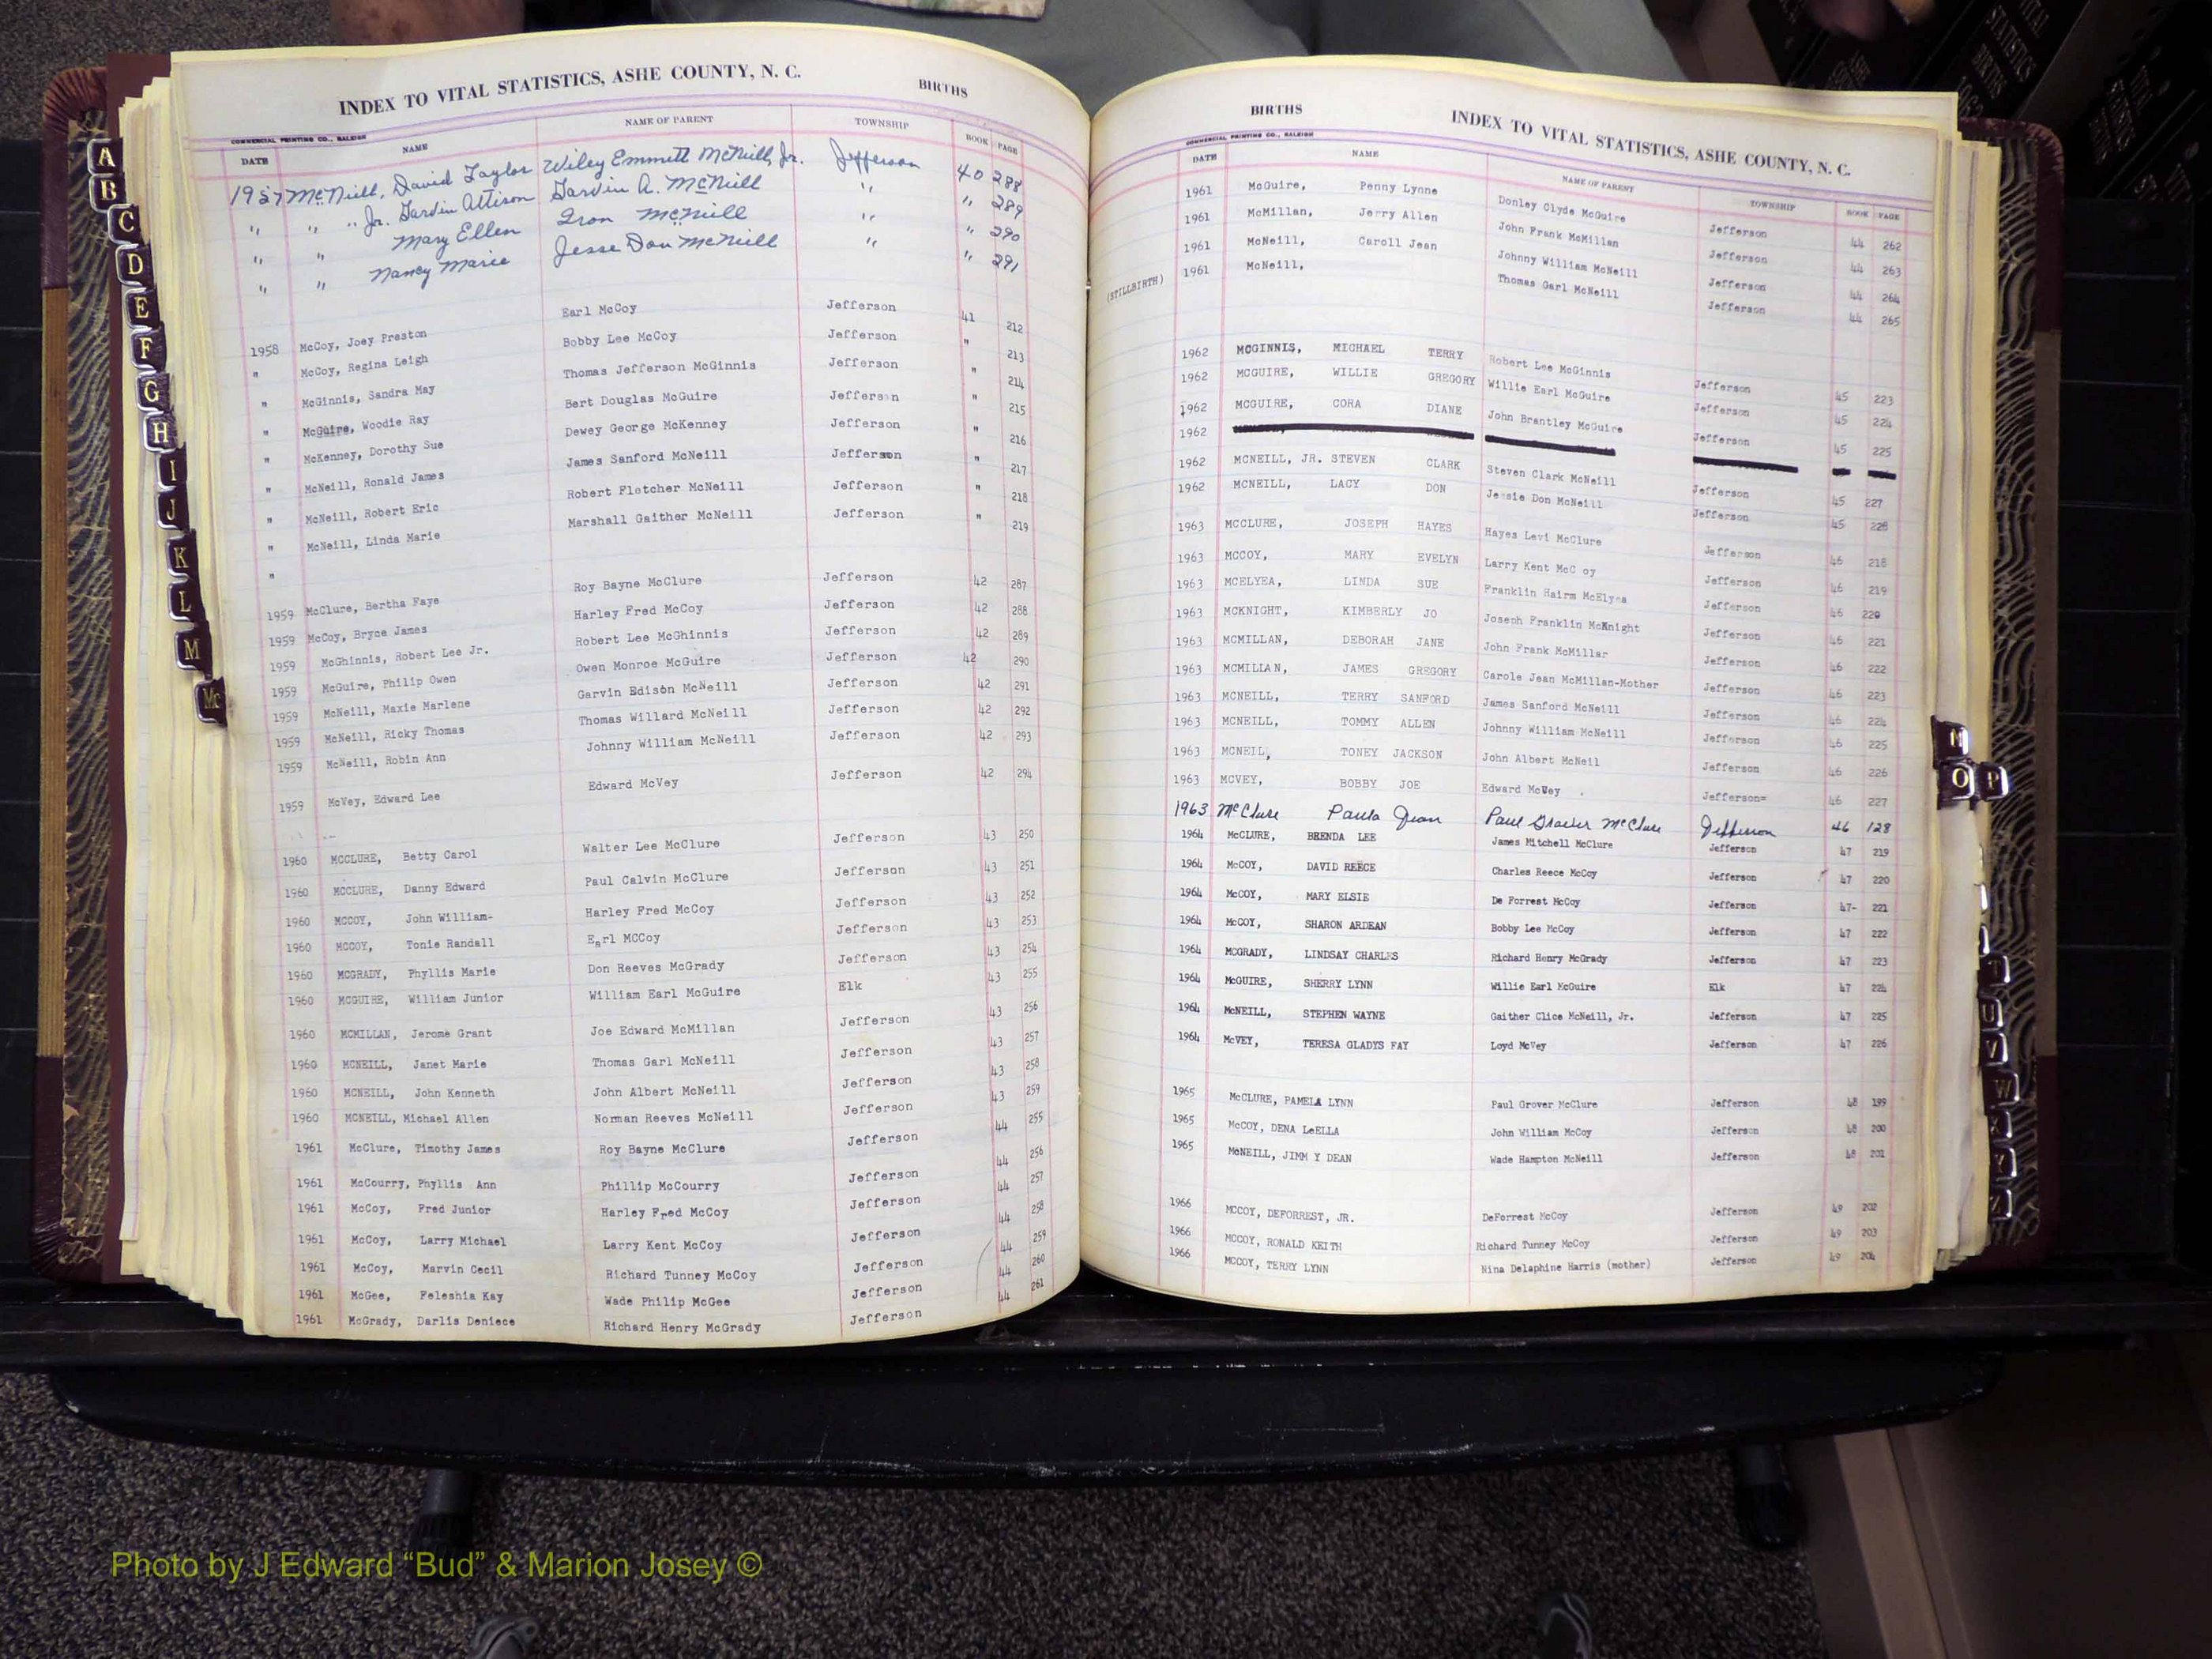 INDEX TO VITAL STATISTICS, ASHE COUNTY, N. C. BIRTHS
COMMERCIAL PRINTING CO., RALEIGH
DATE NAME NAME OF PARENT TOWNSHIP BOOK PAGE
1957 McNeill, David Taylor Wiley Emmett McNeill, Jr. Jefferson 40 288
" " " Jr. Garvin Attison Garvin A. McNeill " " 289
" " Mary Ellen Iron McNeill " " 290
" " Nancy Marie Jesse Don McNeill " " 291
1958 McCoy, Joey Preston Earl McCoy Jefferson 41 212
" McCoy, Regina Leigh Bobby Lee McCoy Jefferson " 213
" McGinnis, Sandra May Thomas Jefferson McGinnis Jefferson " 214
" McGuire, Woodie Ray Bert Douglas McGuire Jefferson " 215
" McKenney, Dorothy Sue Dewey George McKenney Jefferson " 216
" McNeill, Ronald James James Sanford McNeill Jefferson " 217
" McNeill, Robert Eric Robert Fletcher McNeill Jefferson " 218
" McNeill, Linda Marie Marshall Gaither McNeill Jefferson " 219
1959 McClure, Bertha Faye Roy Bayne McClure Jefferson 42 287
1959 McCoy, Bryce James Harley Fred McCoy Jefferson 42 288
1959 McGhinnis, Robert Lee Jr. Robert Lee McGhinnis Jefferson 42 289
1959 McGuire, Philip Owen Owen Monroe McGuire Jefferson 42 290
1959 McNeill, Maxie Marlene Garvin Edison McNeill Jefferson 42 291
1959 McNeill, Ricky Thomas Thomas Willard McNeill Jefferson 42 292
1959 McNeill, Robin Ann Johnny William McNeill Jefferson 42 293
1959 McVey, Edward Lee Edward McVey Jefferson 42 294
1960 MCCLURE, Betty Carol Walter Lee McClure Jefferson 43 250
1960 MCCLURE, Danny Edward Paul Calvin McClure Jefferson 43 251
1960 MCCOY, John William- Harley Fred McCoy Jefferson 43 252
1960 MCCOY, Tonie Randall Earl MCCoy Jefferson 43 253
1960 MCGRADY, Phyllis Marie Don Reeves McGrady Jefferson 43 254
1960 MCGUIRE, William Junior William Earl McGuire Elk 43 255
1960 MCMILLAN, Jerome Grant Joe Edward McMillan Jefferson 43 256
1960 MCNEILL, Janet Marie Thomas Garl McNeill Jefferson 43 257
1960 MCNEILL, John Kenneth John Albert McNeill Jefferson 43 258
1960 MCNEILL, Michael Allen Norman Reeves McNeill Jefferson 43 259
1961 McClure, Timothy James Roy Bayne McClure Jefferson 44 255
1961 McCourry, Phyllis Ann Phillip McCourry Jefferson 44 256
1961 McCoy, Fred Junior Harley Fred McCoy Jefferson 44 257
1961 McCoy, Larry Michael Larry Kent McCoy Jefferson 44 258
1961 McCoy, Marvin Cecil Richard Tunney McCoy Jefferson 44 259
1961 McGee, Feleshia Kay Wade Philip McGee Jefferson 44 260
1961 McGrady, Darlis Deniece Richard Henry McGrady Jefferson 44 261
BIRTHS INDEX TO VITAL STATISTICS, ASHE COUNTY, N. C.
COMMERCIAL PRINTING CO., RALEIGH
DATE NAME NAME OF PARENT TOWNSHIP BOOK PAGE
1961 McGuire, Penny Lynne Donley Clyde McGuire Jefferson 44 262
1961 McMillan, Jerry Allen John Frank McMillan Jefferson 44 263
1961 McNeill, Caroll Jean Johnny William McNeill Jefferson 44 264
(STILLBIRTH) 1961 McNeill, Thomas Garl McNeill Jefferson 44 265
1962 MCGINNIS, MICHAEL TERRY Robert Lee McGinnis Jefferson 45 223
1962 MCGUIRE, WILLIE GREGORY Willie Earl McGuire Jefferson 45 224
1962 MCGUIRE, CORA DIANE John Brantley McGuire Jefferson 45 225
1962
1962 MCNEILL, JR. STEVEN CLARK Steven Clark McNeill Jefferson 45 227
1962 MCNEILL, LACY DON Jessie Don McNeill Jefferson 45 228
1963 MCCLURE, JOSEPH HAYES Hayes Levi McClure Jefferson 46 218
1963 MCCOY, MARY EVELYN Larry Kent McC oy Jefferson 46 219
1963 MCELYEA, LINDA SUE Franklin Hairm McElyea Jefferson 46 220
1963 MCKNIGHT, KIMBERLY JO Joseph Franklin McKnight Jefferson 46 221
1963 MCMILLAN, DEBORAH JANE John Frank McMillar Jefferson 46 222
1963 MCMILLAN, JAMES GREGORY Carole Jean McMillan-Mother Jefferson 46 223
1963 MCNEILL, TERRY SANFORD James Sanford McNeill Jefferson 46 224
1963 MCNEILL, TOMMY ALLEN Johnny William McNeill Jefferson 46 225
1963 MCNEIL, TONEY JACKSON John Albert McNeil Jefferson 46 226
1963 MCVEY, BOBBY JOE Edward McVey Jefferson= 46 227
1963 McClure Paula Jean Paul Graver McClure Jefferson 46 128
1964 McCLURE, BRENDA LEE James Mitchell McClure Jefferson 47 219
1964 McCOY, DAVID REECE Charles Reece McCoy Jefferson 47 220
1964 McCOY, MARY ELSIE De Forrest McCoy Jefferson 47- 221
1964 McCOY, SHARON ARDEAN Bobby Lee McCoy Jefferson 47 222
1964 MCGRADY, LINDSAY CHARLES Richard Henry McGrady Jefferson 47 223
1964 McGUIRE, SHERRY LYNN Willie Earl McGuire Elk 47 224
1964 McNEILL, STEPHEN WAYNE Gaither Clice McNeill, Jr. Jefferson 47 225
1964 McVEY, TERESA GLADYS FAY Loyd McVey Jefferson 47 226
1965 McCLURE, PAMELA LYNN Paul Grover McClure Jefferson 48 199
1965 McCOY, DENA LeELLA John William McCoy Jefferson 48 200
1965 McNEILL, JIMM Y DEAN Wade Hampton McNeill Jefferson 48 201
1966 MCCOY, DEFORREST, JR. DeForrest McCoy Jefferson 49 202
1966 MCCOY, RONALD KEITH Richard Tunney McCoy Jefferson 49 203
1966 MCCOY, TERRY LYNN Nina Delaphine Harris (mother) Jefferson 49 204
A
B
C
D
E
F
G
H
I
J
K
L
M
Mc
N
O P
T
U
V
W
X
Y
Z
Photo by J Edward “Bud” & Marion Josey ©